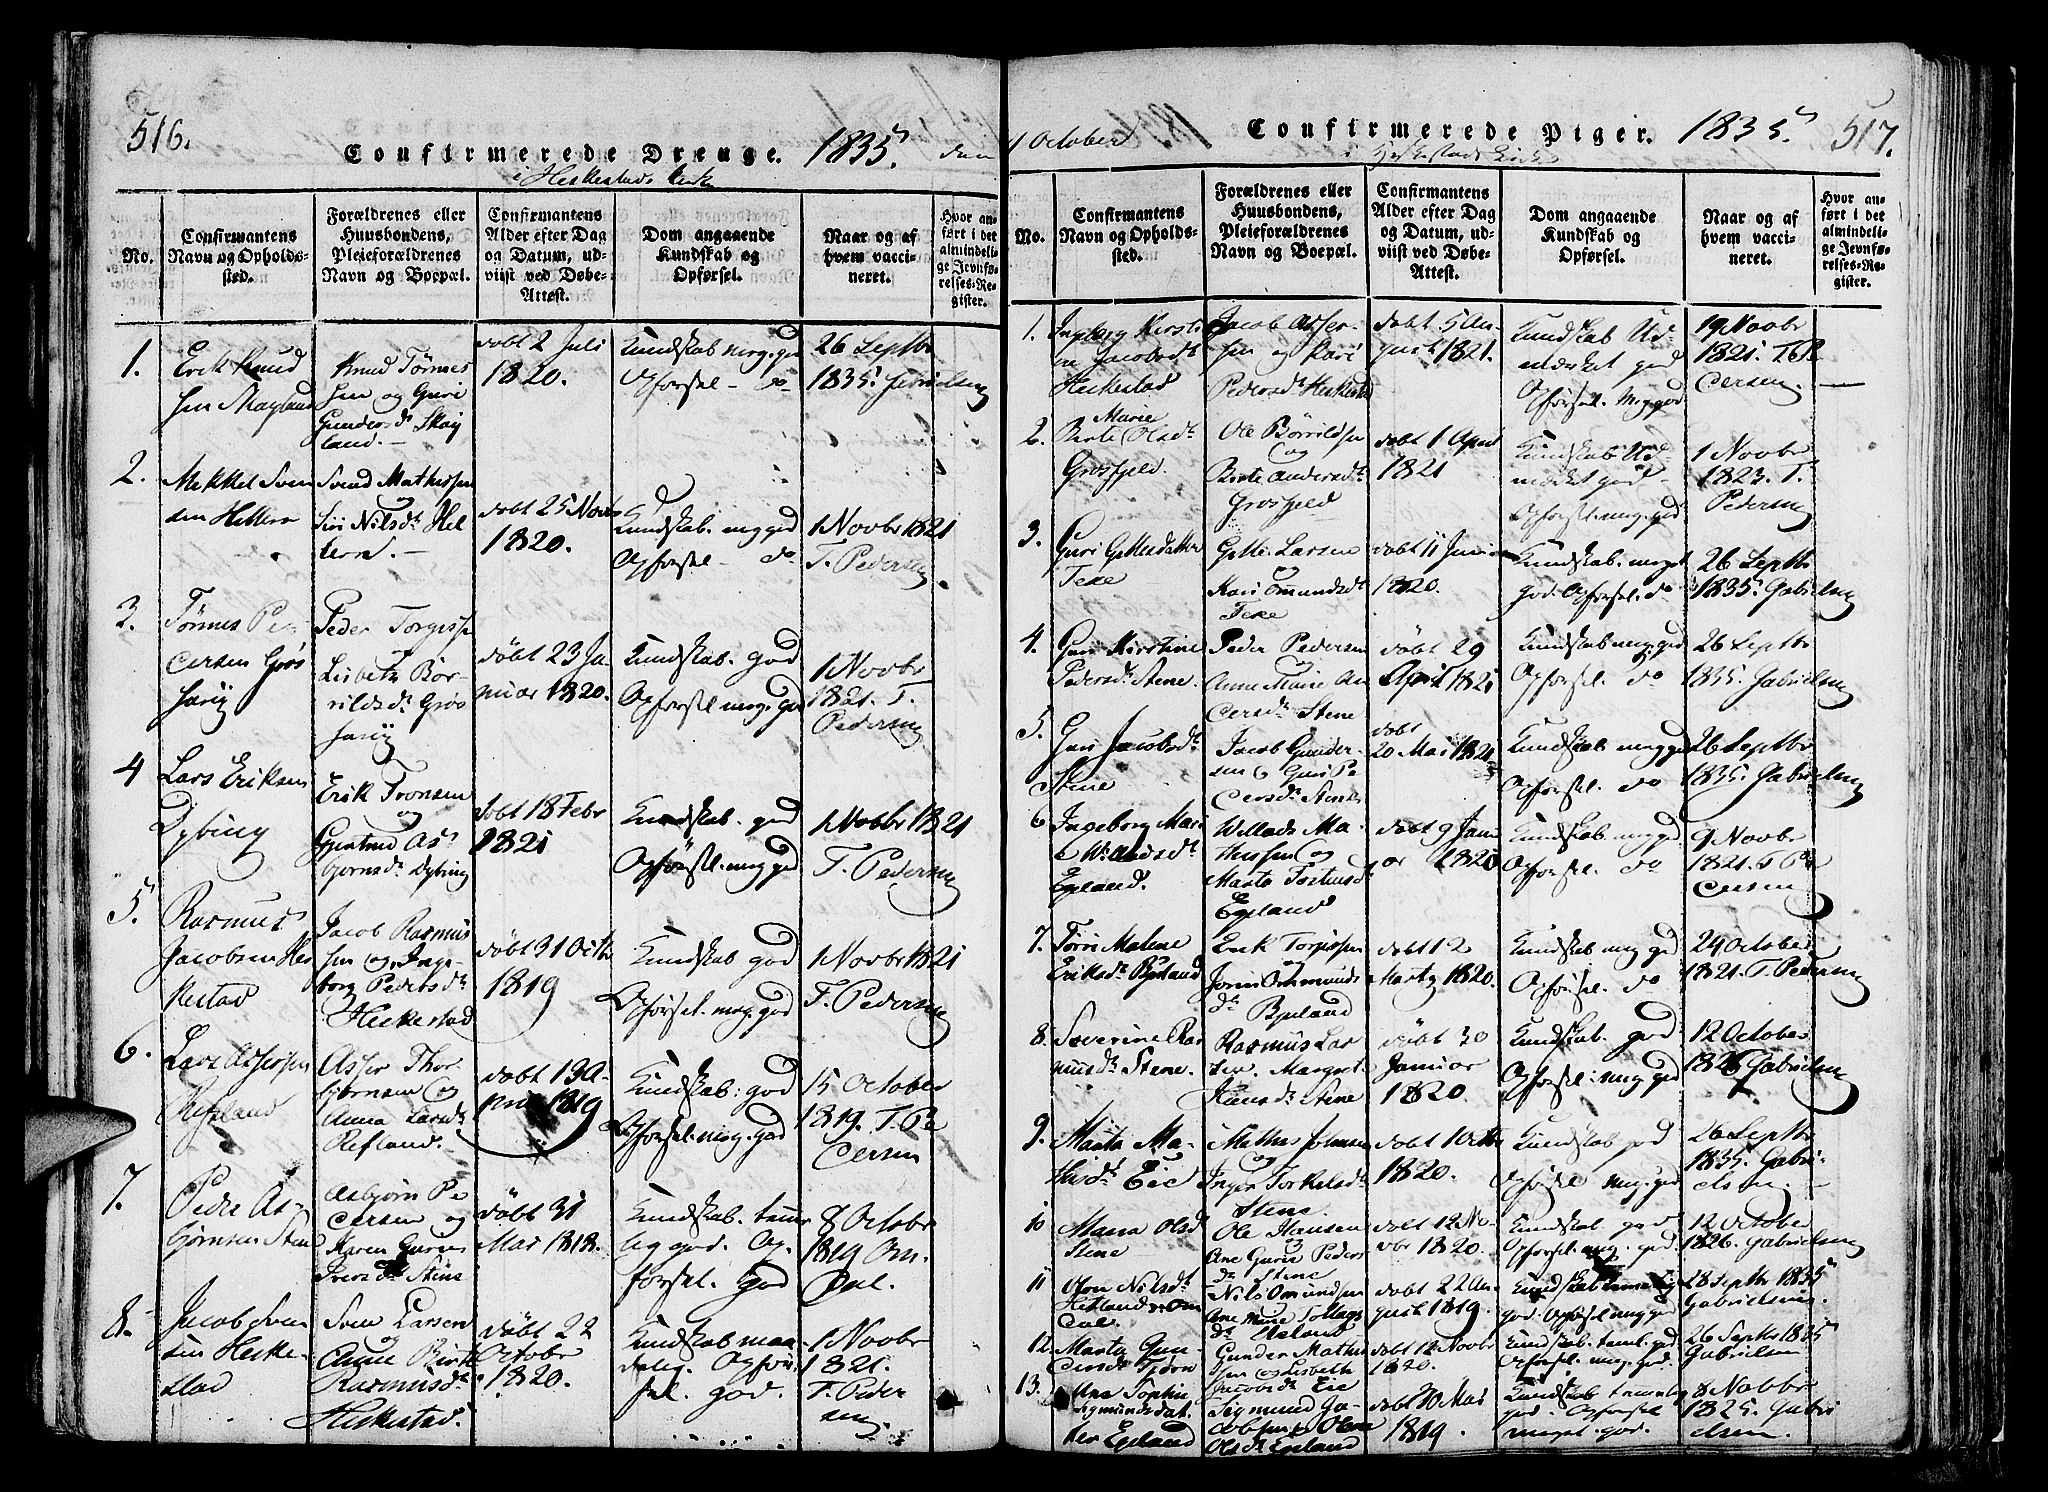 516.
Confirmerede Drenge. 1835. den
i Heskestads Kirke
No.
Confirmantens
Navn og Opholds-
sted.
Forældrenes eller
Huusbondens,
Pleieforældrenes
Navn og Boepæl.
Confirmantens
Alder efter Dag
og Datum, ud-
viist ved Døbe-
Attest.
Dom angaaende
Kundskab og
Opførsel.
Naar og af
hvem vacci-
neret.
Hvor an-
ført i det
almindeli-
ge Jevnfø-
relses-Re-
gister.
1.
Erik Knud
sen Skayland
Knud Tørres
sen og Guri
Gundersdr Skay
land.
døbt 2 Juli
1820.
Kundskab meg. god
Opførsel - do
26 Septbr
1835.
2.
Mikkel Sven
sen Hettern
Svend Mathissen
Siri Nilsdt Het
tern.
døbt 25 Novbr
1820.
Kundskab. meg god
Opførsel - do
1 Novbr 1821
T. Pedersen
3.
Tønnes Pe
dersen Grøs
Peder Torgissen
Lisbeth Bør-
rildsdt Grøs
døbt 23 Ja-
nuar 1820.
Kundskab. god
Opførsel meg. god
1 Novbr
1821. T.
Pedersen
4
Lars Eriksen
Dybing
Erik Tronsen
og
Gjertrud As-
bjørnsdr Dybing
døbt 18 Febr
1821
Kundskab. god
Opførsel. meg god
1 Novbr 1821
T. Pedersen
5.
Rasmus
Jacobsen Hes
kestad
Jacob Rasmus
sen og Inge
borg Pedersdr
Heskestad
døbt 31 Octbr
1819
Kundskab god
Opførsel. meg. god
1 Novbr 1821
T. Pedersen
6.
Lars Assersen
Refsland
Asser Thor
bjørnsen og
Anna Larsdr
Refsland.
døbt 13 A-
pril 1819
Kundskab: god
Opførsel. meg. god
15 October
1819. T. Pe
dersen
7.
Peder As-
bjørnsen Stene
Asbjørn Pe
dersen og
Karen Gurine
Iversdr Stene
døbt 31
Mai 1818.
Kundskab. tem
lig god. Op-
førsel. god
8 Octobr
1819 Om-
dal.
8.
Jacob Sven
sen Heske-
stad
Sven Larsen
og
Anne Birte
Rasmusdr
Heskestad.
døbt 22
Octobr
1820.
Kundskab maa-
delig. Opfør-
sel. god.
1 Novbr
1821.
T. Peder
sen.
4 October
Confirmerede Piger. 1835. 517.
i Heskestads Kirke
No.
Confirmantens
Navn og Opholds-
sted.
Forældrenes eller
Huusbondens,
Pleieforældrenes
Navn og Boepæl.
Confirmantens
Alder efter Dag
og Datum, ud-
viist ved Døbe-
Attest.
Dom angaaende
Kundskab og
Opførsel.
Naar og af
hvem vacci-
neret.
Hvor an-
ført i det
almindeli-
ge Jevnfø-
relses-Re-
gister.
1.
Ingborg Kirsti
ne Jacobsdt
Heskestad
Jacob Asser-
sen og Kari
Pedersdt Heskestad
døbt 5 Au-
gust 1821.
Kundskab Ud-
mærket god
Opførsel. Meg. god
19 Novbr
1821. T. Pe
dersen.
2.
Marie
Berte Olsdt
Grosfjeld.
Ole Børrildsen
og
Berte Andersdt
Grosfjeld
døbt 1 April
1821
Kundskab Ud-
mærket god-
Opførsel. meg. god
1 Novbr
1823. T.
Pedersen
3.
Guri Gittesdatter
Teke
Gitte Larsen
og
Kari Omundsdt
Teke
døbt 11 Juni
1820.
Kundskab. meget
god. Opførsel. do
26 Septbr
1835. Gabrielsen
4.
Guri Kirstine
Pedersdt Stene.
Peder Pedersen
Anne Marie An
dersdt Stene
døbt 29
April 1821
Kundskab. meg. god
Opførsel. do
26 Septbr
1835. Gabrielsen
5.
Guri Jacobsdt
Stene
Jacob Gunder-
sen og Guri Pe
dersdt Stene
døbt
20 Mai 1821
Kundskab. meg god
Opførsel. do
26 Septbr
1835. Gabrielsen
6
Ingeborg Mari
e Willadsdt
Egeland.
Willads Ma-
thissen og
Marta
Egeland
døbt 9 Janu
ar 1820
Kundskab. meg. god
Opførsel. do
9 Novbr
1821. T Pe
dersen
7.
Tørri Malene
Eriksdt Bjuland
Erik Torgissen
og
Jorin Ommunds
dt Bjuland
døbt 12
Marty 1820.
Kundskab meg god
Opførsel. do
29 October
1821. T. Pedersen
8.
Severine Ras
musdt Stene.
Rasmus Lar
sen. Margret
Hansdt Stene
døbt 30
Januar
1820
Kundskab. god.
Opførsel: meg. god
12 October
1826 Gabrielsen
9.
Marta Ma-
thisdt Eie
Mathis Johnsen
og
Inger Torkelsdt
Stene.
døbt 1 Octbr
1820.
Kundskab god
Opførsel meg. god
26 Septbr
1835. Gabri-
elsen.
10
Maria Olsd
Stene
Ole Hansen
og
Ane Gurie Peders
dt Stene
døbt 12 No-
vbr 1820.
Kundskab god
Opførsel. meg. god.
12 October
1826. Gabrielsen
11
Nilsdt
Hetland Om
dal.
Nils Omundsen
Ane Marie Tollags
dt
døbt 22 Au
gust 1819.
Kundskab temmelig
god. Opførsel meg god
28 Septbr 1835
Gabrielsens.
12.
Marta Gun-
dersdt
Gunder Mathis
sen Lisbeth
Jacobsdt Eie
døbt 12 Novbr
1820.
Kundskab. teml. god
Opførsel. meg. god.
26 Septbr 1835
Gabrielsen
13.
Ane Sophie
Sigmundsdat-
ter Egeland
Sigmund Ja-
cobsen Olene
Olsdt Egeland
døbt 30 Mai
1819.
Kundskab temmelig
god. Opførsel
meget god.
8 Nobbr
1825. Gabri
elsen